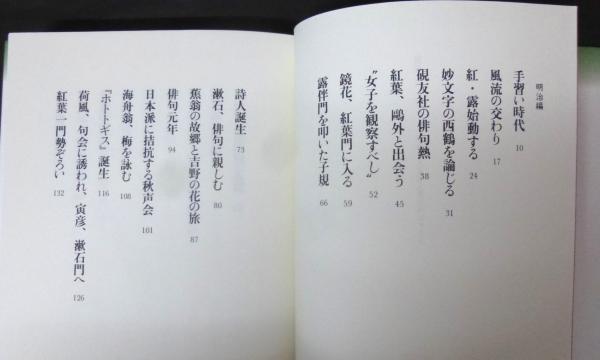 明治編
手習い時代 10
風流の交わり 17
紅・露始動する 24
妙文字の西鶴を論じる 31
硯友社の俳句熱 38
紅葉、鷗外と出会う 45
〝女子を観察すべし〟 52
鏡花、紅葉門に入る 59
露伴門を叩いた子規 66
詩人誕生 73
漱石、俳句に親しむ 80
蕉翁の故郷と吉野の花の旅 87
俳句元年 94
日本派に拮抗する秋声会 101
海舟翁、梅を詠む 108
『ホトトギス』誕生 116
荷風、句会に誘われ、寅彦、漱石門へ 126
紅葉一門勢ぞろい 132